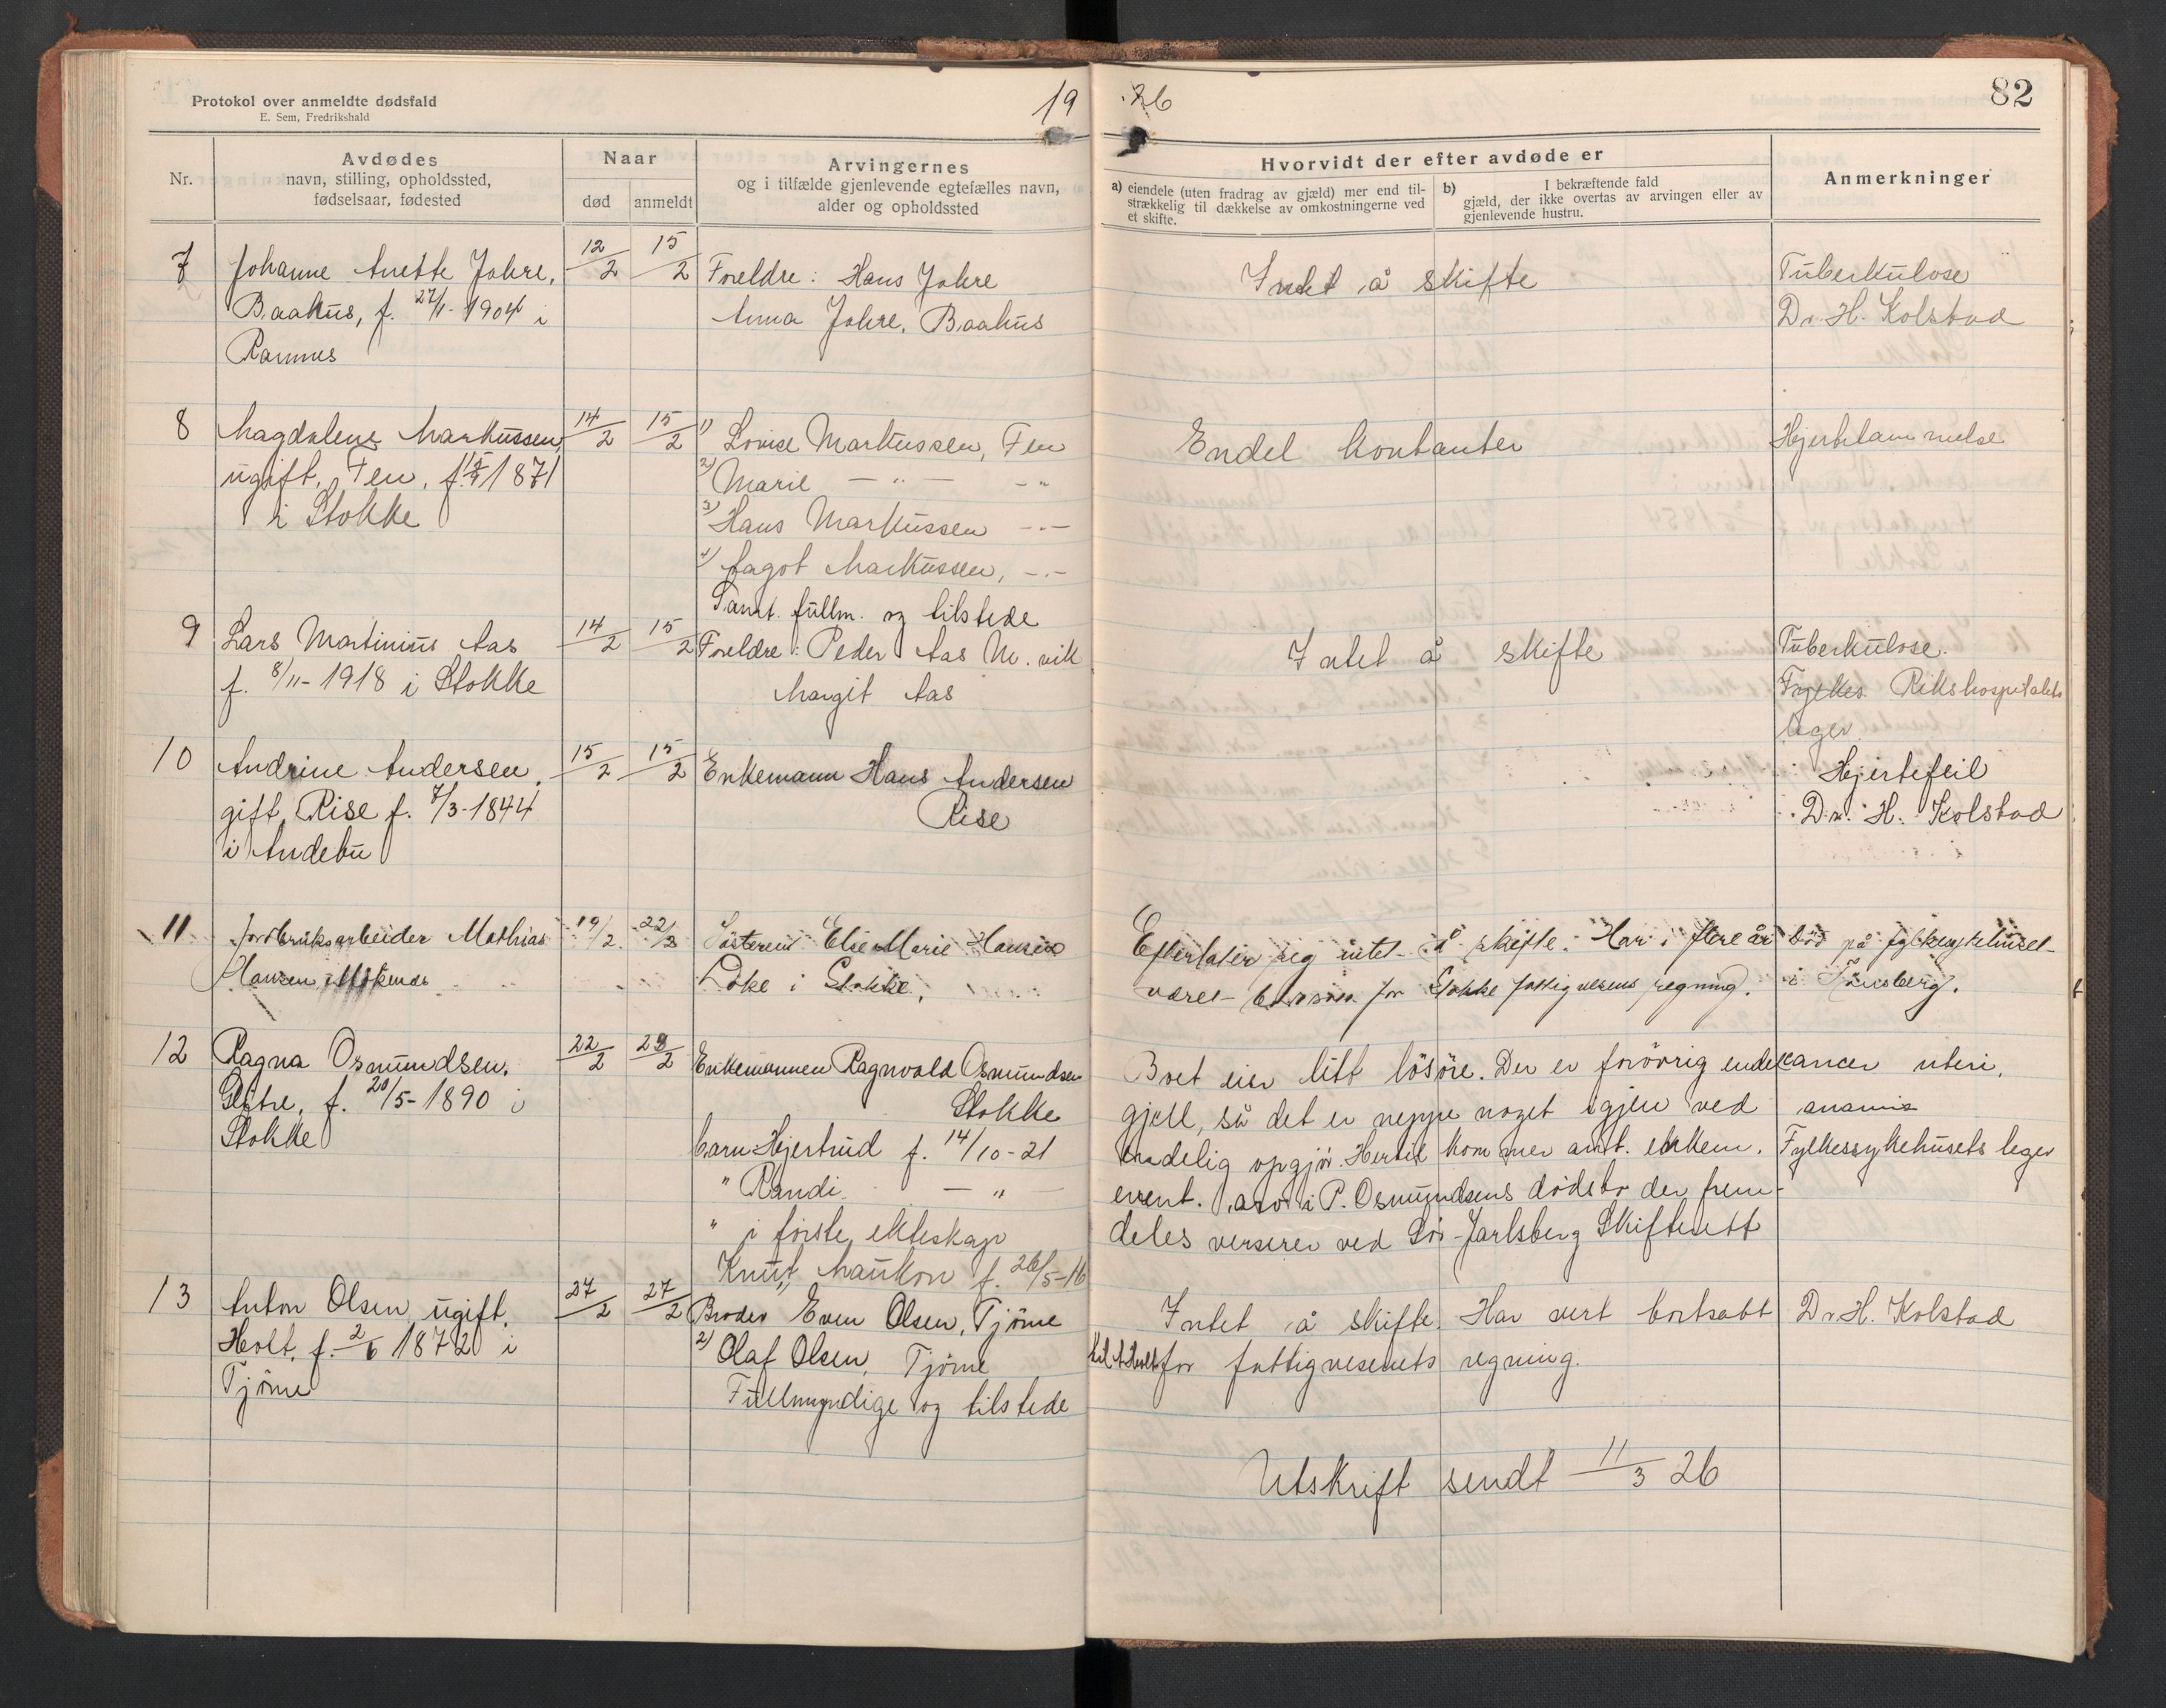 Protokol over anmeldte dødsfald
E. Sem, Fredrikshald
19
26
82
Nr.
Avdødes
navn, stilling, opholdssted,
fødselsaar, fødested
Naar
død
anmeldt
Arvingernes
og i tilfælde gjenlevende egtefælles navn,
alder og opholdssted
Hvorvidt der efter avdøde er
a) eiendele (uten fradrag av gjæld) mer end til-
strækkelig til dækkelse av omkostningerne ved
et skifte.
b) I bekræftende fald
gjæld, der ikke overtas av arvingen eller av
gjenlevende hustru.
Anmerkninger
7 Johanne Anette Johre, 12/2 15/2 Foreldre: Hans Johre Intet å skifte Tuberkulose
Baahus, f. 27/1-1904 i Anna Johre, Baahus Dr. H. Kolstad
Ramnes
8 Magdalene Markussen, 14/2 15/2 1) Lovise Markussen, Fen Endel kontanter Hjertelammelse
ugift, Fen, f. 1871 2) Marie — " — - "
i Stokke 3) Hans Markussen — " —
4) Jagot Markussen, — " —
Samt. fullm. og tilstede
9 Lars Martinius Aas 14/2 15/2 Foreldre: Peder Aas M. vik Intet å skifte Tuberkulose.
f. 8/11-1918 i Stokke Margit Aas Rikshospitalets
læger
10 Andrine Andersen, 15/2 15/2 Enkemann Hans Andersen Hjertefeil
gift, Rise f. 7/3-1844 Rise Dr. H. Kolstad
i Andebu
11 Jordbruksarbeider Mathias 19/2 22/2 Søsteren Else Marie Hansen Efterlater sig intet å skifte. Har i flere år død på fylkesykehuset
Hansen Løke i Stokke, været bortsatt for Stokke fattigvesens regning. i Tønsberg.
12 Ragna Osmundsen, 22/2 23/2 Enkemannen Ragnvald Osmundsen Boet eier litt løsøre. Der er forøvrig endel cancer uteri,
f. 20/5-1890 i Stokke gjell, så det er neppe noget igjen ved anamia
Stokke barn Hjertrud f. 14/10-21 endelig opgjør. Hertil kommer anf. enkem. Fylkessykehusets leger
" Randi — " — event. arv i P. Osmundsens dødsbo der frem-
" i første ekteskap deles verserer ved Sør-Jarlsberg Skifterett
Knut Haukon f. 26/5-16
13 Anton Olsen, ugift, 27/2 27/2 Broder Even Olsen, Tjøme Intet å skifte. Har vert bortsatt Dr. H. Kolstad
Holt, f. 2/6 1872 i 2) Olaf Olsen, Tjøme til Holt for fattigvesenets regning.
Tjøme Fullmyndige og tilstede
Utskrift sendt 11/3 26